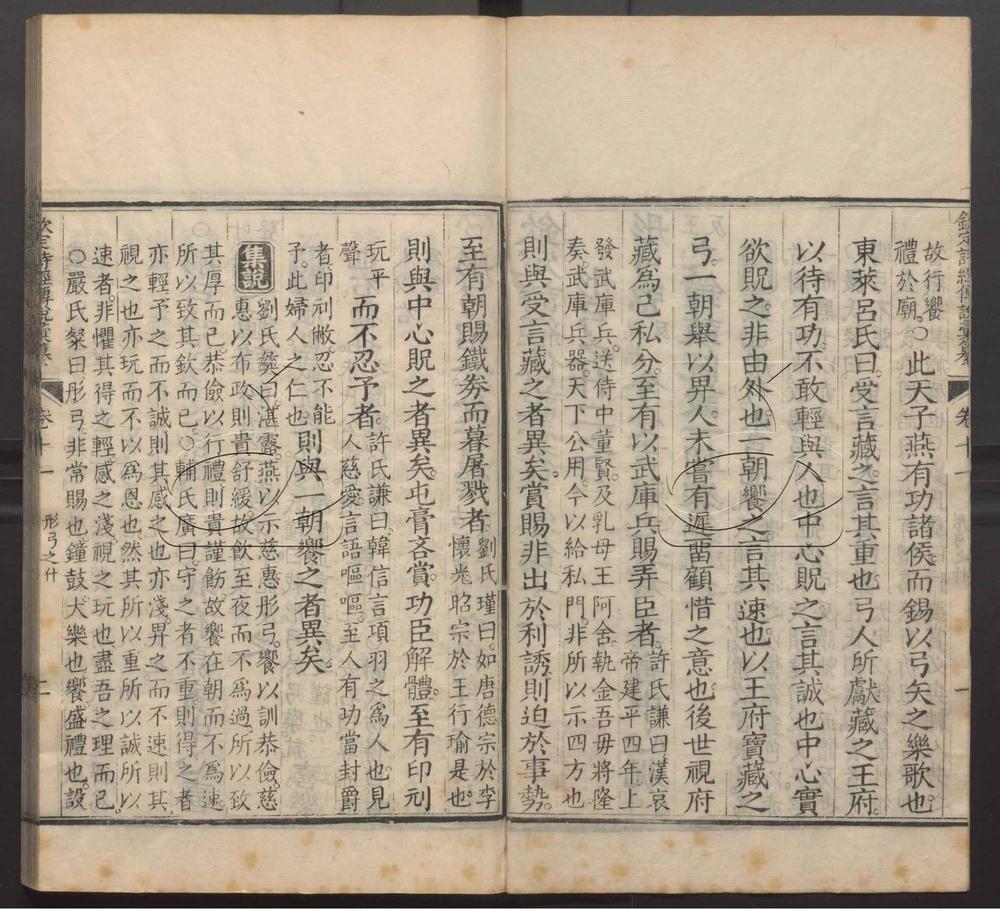 欽定詩經傳說彙纂
卷十一
一
故行饗
禮於廟○此天子燕有功諸侯而錫以弓矢之樂歌也
東萊呂氏曰受言藏之言其重也弓人所獻藏之王府
以待有功不敢輕與人也中心貺之言其誠也中心實
欲貺之非由外也一朝饗之言其速也以王府寶藏之
弓一朝舉以畀人未嘗有遲留顧惜之意也後世視府
藏爲己私分至有以武庫兵賜弄臣者許氏謙曰漢哀
帝建平四年上
發武庫兵送侍中董賢及乳母王阿舍執金吾毋將隆
奏武庫兵器天下公用今以給私門非所以示四方也
則與受言藏之者異矣賞賜非出於利誘則迫於事勢
至有朝賜鐵券而暮屠戮者劉氏瑾曰如唐德宗於李
懷光昭宗於王行瑜是也
則與中心貺之者異矣屯膏吝賞功臣解體至有印刓
玩平
聲
而不忍予者許氏謙曰韓信言項羽之爲人也見
人慈愛言語嘔嘔至人有功當封爵
者印刓敝忍不能
予此婦人之仁也則與一朝饗之者異矣
集說劉氏彝曰湛露燕以示慈惠彤弓饗以訓恭儉慈
惠以布政則貴舒緩故飲至夜而不爲過所以致
其厚而已恭儉以行禮則貴謹飭故饗在朝而不爲速
所以致其欽而已○輔氏廣曰守之者不重則得之者
亦輕予之而不誠則其感之也亦淺畀之而不速則其
視之也亦玩而不以爲恩也然其所以重所以誠所以
速者非懼其得之輕感之淺視之玩也盡吾之理而已
○嚴氏粲曰彤弓非常賜也鐘鼓大樂也饗盛禮也設
欽定詩經傳說彙纂
卷十一
彤弓之什
二